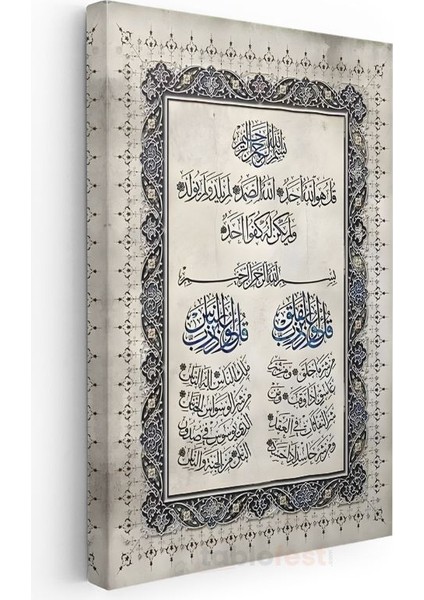 بسم الله الرحمن الرحيم
قل هو الله أحد الله الصمد لم يلد ولم يولد
ولم يكن له كفوا أحد
بسم الله الرحمن الرحيم
قل أعوذ برب الفلق
من شر ما خلق ومن شر
غاسق إذا وقب ومن
شر النفاثات في العقد
ومن شر حاسد إذا حسد
قل أعوذ برب الناس
ملك الناس إله الناس
من شر الوسواس الخناس
الذي يوسوس في صدور
الناس من الجنة والناس
tablofesti